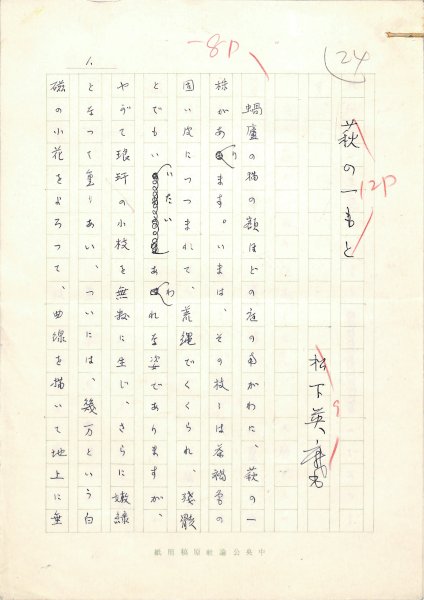 24
-8P
1.
萩の一もと
12P
松下英麿
9
蝸廬の猫の額ほどの庭の南がわに、萩の一
株があります。いまは、その枝々は茶褐色の
固い皮につつまれて、荒縄でくくられ、残骸
とでもいいたいあわれな姿でありますが、
やがて琅玕の小枝を無数に生じ、さらに嫩緑
となって重りあい、ついには、幾万という白
磁の小花をよろって、曲線を描いて地上に垂
中央公論社原稿用紙